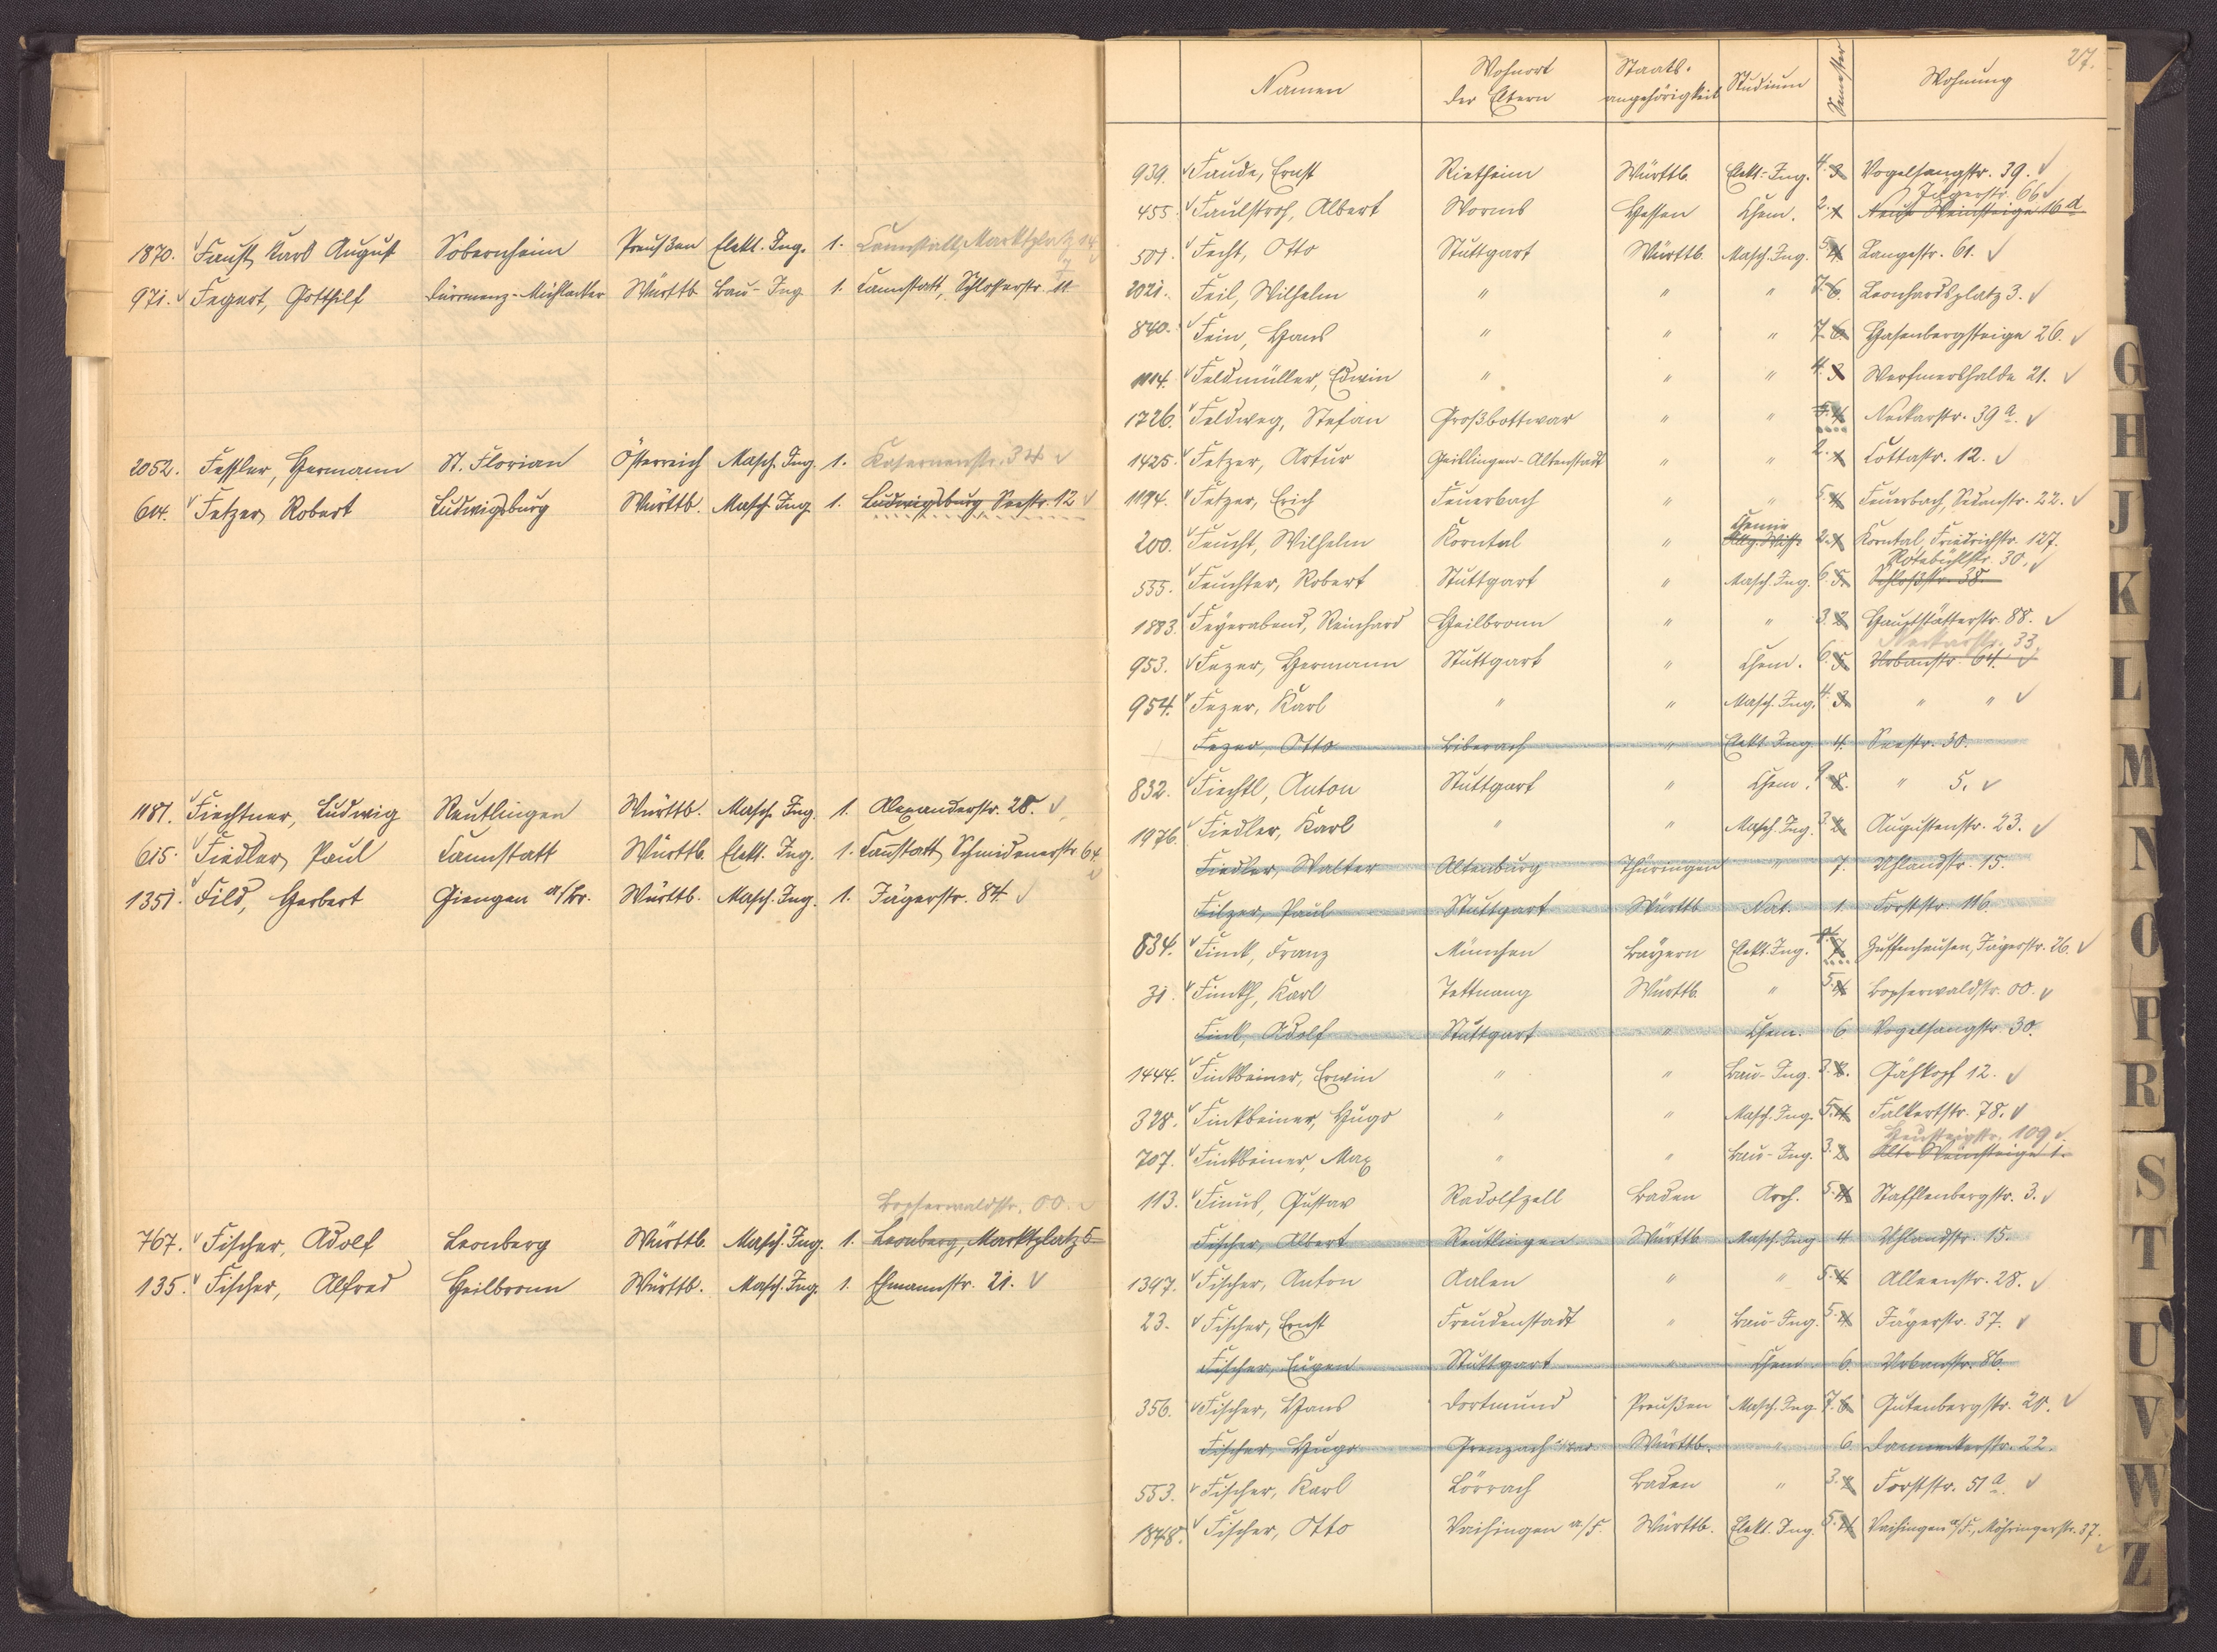 1870. Faust, Karl August Sobernheim Preußen Elekt. Ing. 1. Cannstatt, Marktplatz 14
971. Fegert, Gotthilf Dürrmenz-Mühlacker Württb. Bau-Ing. 1. Cannstatt, Schloßerstr. 11
2052. Feßler, Hermann St. Florian Österreich Masch. Ing. 1. Kasernenstr. 34
614. Fetzer, Robert Ludwigsburg Württb. Masch. Ing. 1. Ludwigsburg, Seestr. 12
1181. Fiechtner, Ludwig Reutlingen Württb. Masch. Ing. 1. Alexanderstr. 28.
615. Fiedler, Paul Cannstatt Württb. Elekt. Ing. 1. Cannstatt, Schmidenerstr. 64.
1351. Fild, Herbert Giengen a/Br. Württb. Masch. Ing. 1. Jägerstr. 84.
Bopserwaldstr. 00.
767. Fischer, Adolf Leonberg Württb. Masch. Ing. 1. Leonberg, Marktplatz 5
135. Fischer, Alfred Heilbronn Württb. Masch. Ing. 1. Ehmannstr. 21.
27.
Namen Wohnort der Eltern Staats-angehörigkeit Studium Semester Wohnung
939. Faude, Ernst Rietheim Württb. Elekt.-Ing. 4. 3 Vogelsangstr. 39.
Jägerstr. 66
455. Faulstroh, Albert Worms Hessen Chem. 2. 1 Neue Weinsteige 16 a
501. Fecht, Otto Stuttgart Württb. Masch. Ing. 5. 4 Langestr. 61.
2021. Feil, Wilhelm " " " 7. 6. Leonhardsplatz 3.
840. Fein, Hans " " " 7. 6. Hasenbergsteige 26.
1114. Feldmüller, Edwin " " " 4. 3 Werfmershalde 21.
1726. Feldweg, Stefan Großbottwar " " 5. 4 Neckarstr. 39 a.
1425. Fetzer, Artur Geislingen-Altenstadt " " 2. 1 Cottastr. 12.
1194. Fetzer, Erich Feuerbach " " 5. 4 Feuerbach, Sedanstr. 22.
Chemie
200. Feucht, Wilhelm Korntal " Allg. Wiss. 2. 1 Korntal, Friedrichstr. 127.
Rotebühlstr. 30.
555. Feuchter, Robert Stuttgart " Masch. Ing. 6. 5. Schloßstr. 38.
1883. Feyerabend, Reinhard Heilbronn " " 3. 2 Hauptstätterstr. 88.
Neckarstr. 33.
953. Fezer, Hermann Stuttgart " Chem. 6. 5 Urbanstr. 64.
954. Fezer, Karl " " Masch. Ing. 4. 3. " "
Fezer, Otto Biberach " Elekt. Ing. 4. Seestr. 30.
832. Fiechtl, Anton Stuttgart " Chem. 9. 8. " 5.
1976. Fiedler, Karl " " Masch. Ing. 3. 2. Augustenstr. 23.
Fiedler, Walter Altenburg Thüringen " 7. Uhlandstr. 15.
Filzer, Paul Stuttgart Württb. Nat. 1. Forststr. 116.
834. Finck, Franz München Bayern Elekt. Ing. 8. 7 Zuffenhausen, Jägerstr. 26.
31. Finckh, Karl Tettnang Württb. " 5. 4 Bopserwaldstr. 00.
Fink, Adolf Stuttgart " Chem. 6 Vogelsangstr. 30.
1444. Finkbeiner, Erwin " " Bau-Ing. 3. 2. Gähkopf 12.
328. Finkbeiner, Hugo " " Masch. Ing. 5. 4. Falkertstr. 78.
Heusteigstr. 109.
707. Finkbeiner, Max " " Bau-Ing. 3. 2. Alte Weinsteige 1.
113. Finus, Gustav Radolfzell Baden Arch. 5. 4 Stafflenbergstr. 3.
Fischer, Albert Reutlingen Württb. Masch. Ing. 4 Uhlandstr. 15.
1347. Fischer, Anton Aalen " " 5. 4. Alleenstr. 28.
23. Fischer, Ernst Freudenstadt " Bau-Ing. 5. 4 Jägerstr. 37.
Fischer, Eugen Stuttgart " Chem. 6. Urbanstr. 86.
356. Fischer, Hans Dortmund Preußen Masch. Ing. 7. 6 Gutenbergstr. 20.
Fischer, Hugo Grenzach Württb. " 6. Danneckerstr. 22.
553. Fischer, Karl Lörrach Baden " 3. 2 Forststr. 51 a.
1848. Fischer, Otto Vaihingen a/F. Württb. Elekt. Ing. 5. 4 Vaihingen a/F., Möhringerstr. 37.
G
H
J
K
L
M
N
O
P
R
S
T
U
V
W
Z